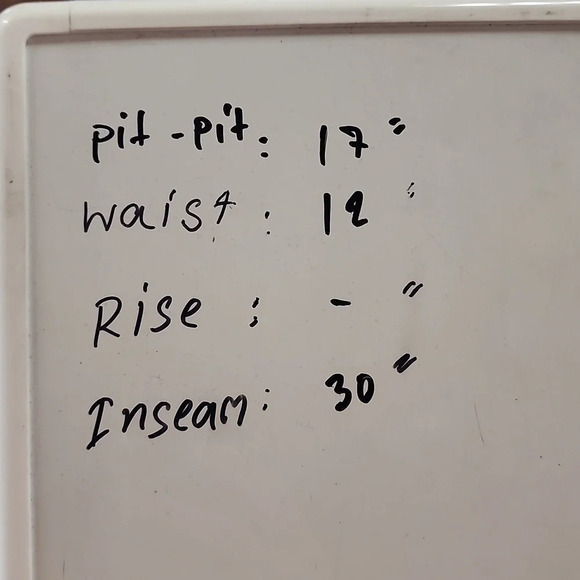 pit - pit : 17"
waist : 12"
Rise : - "
Inseam : 30"